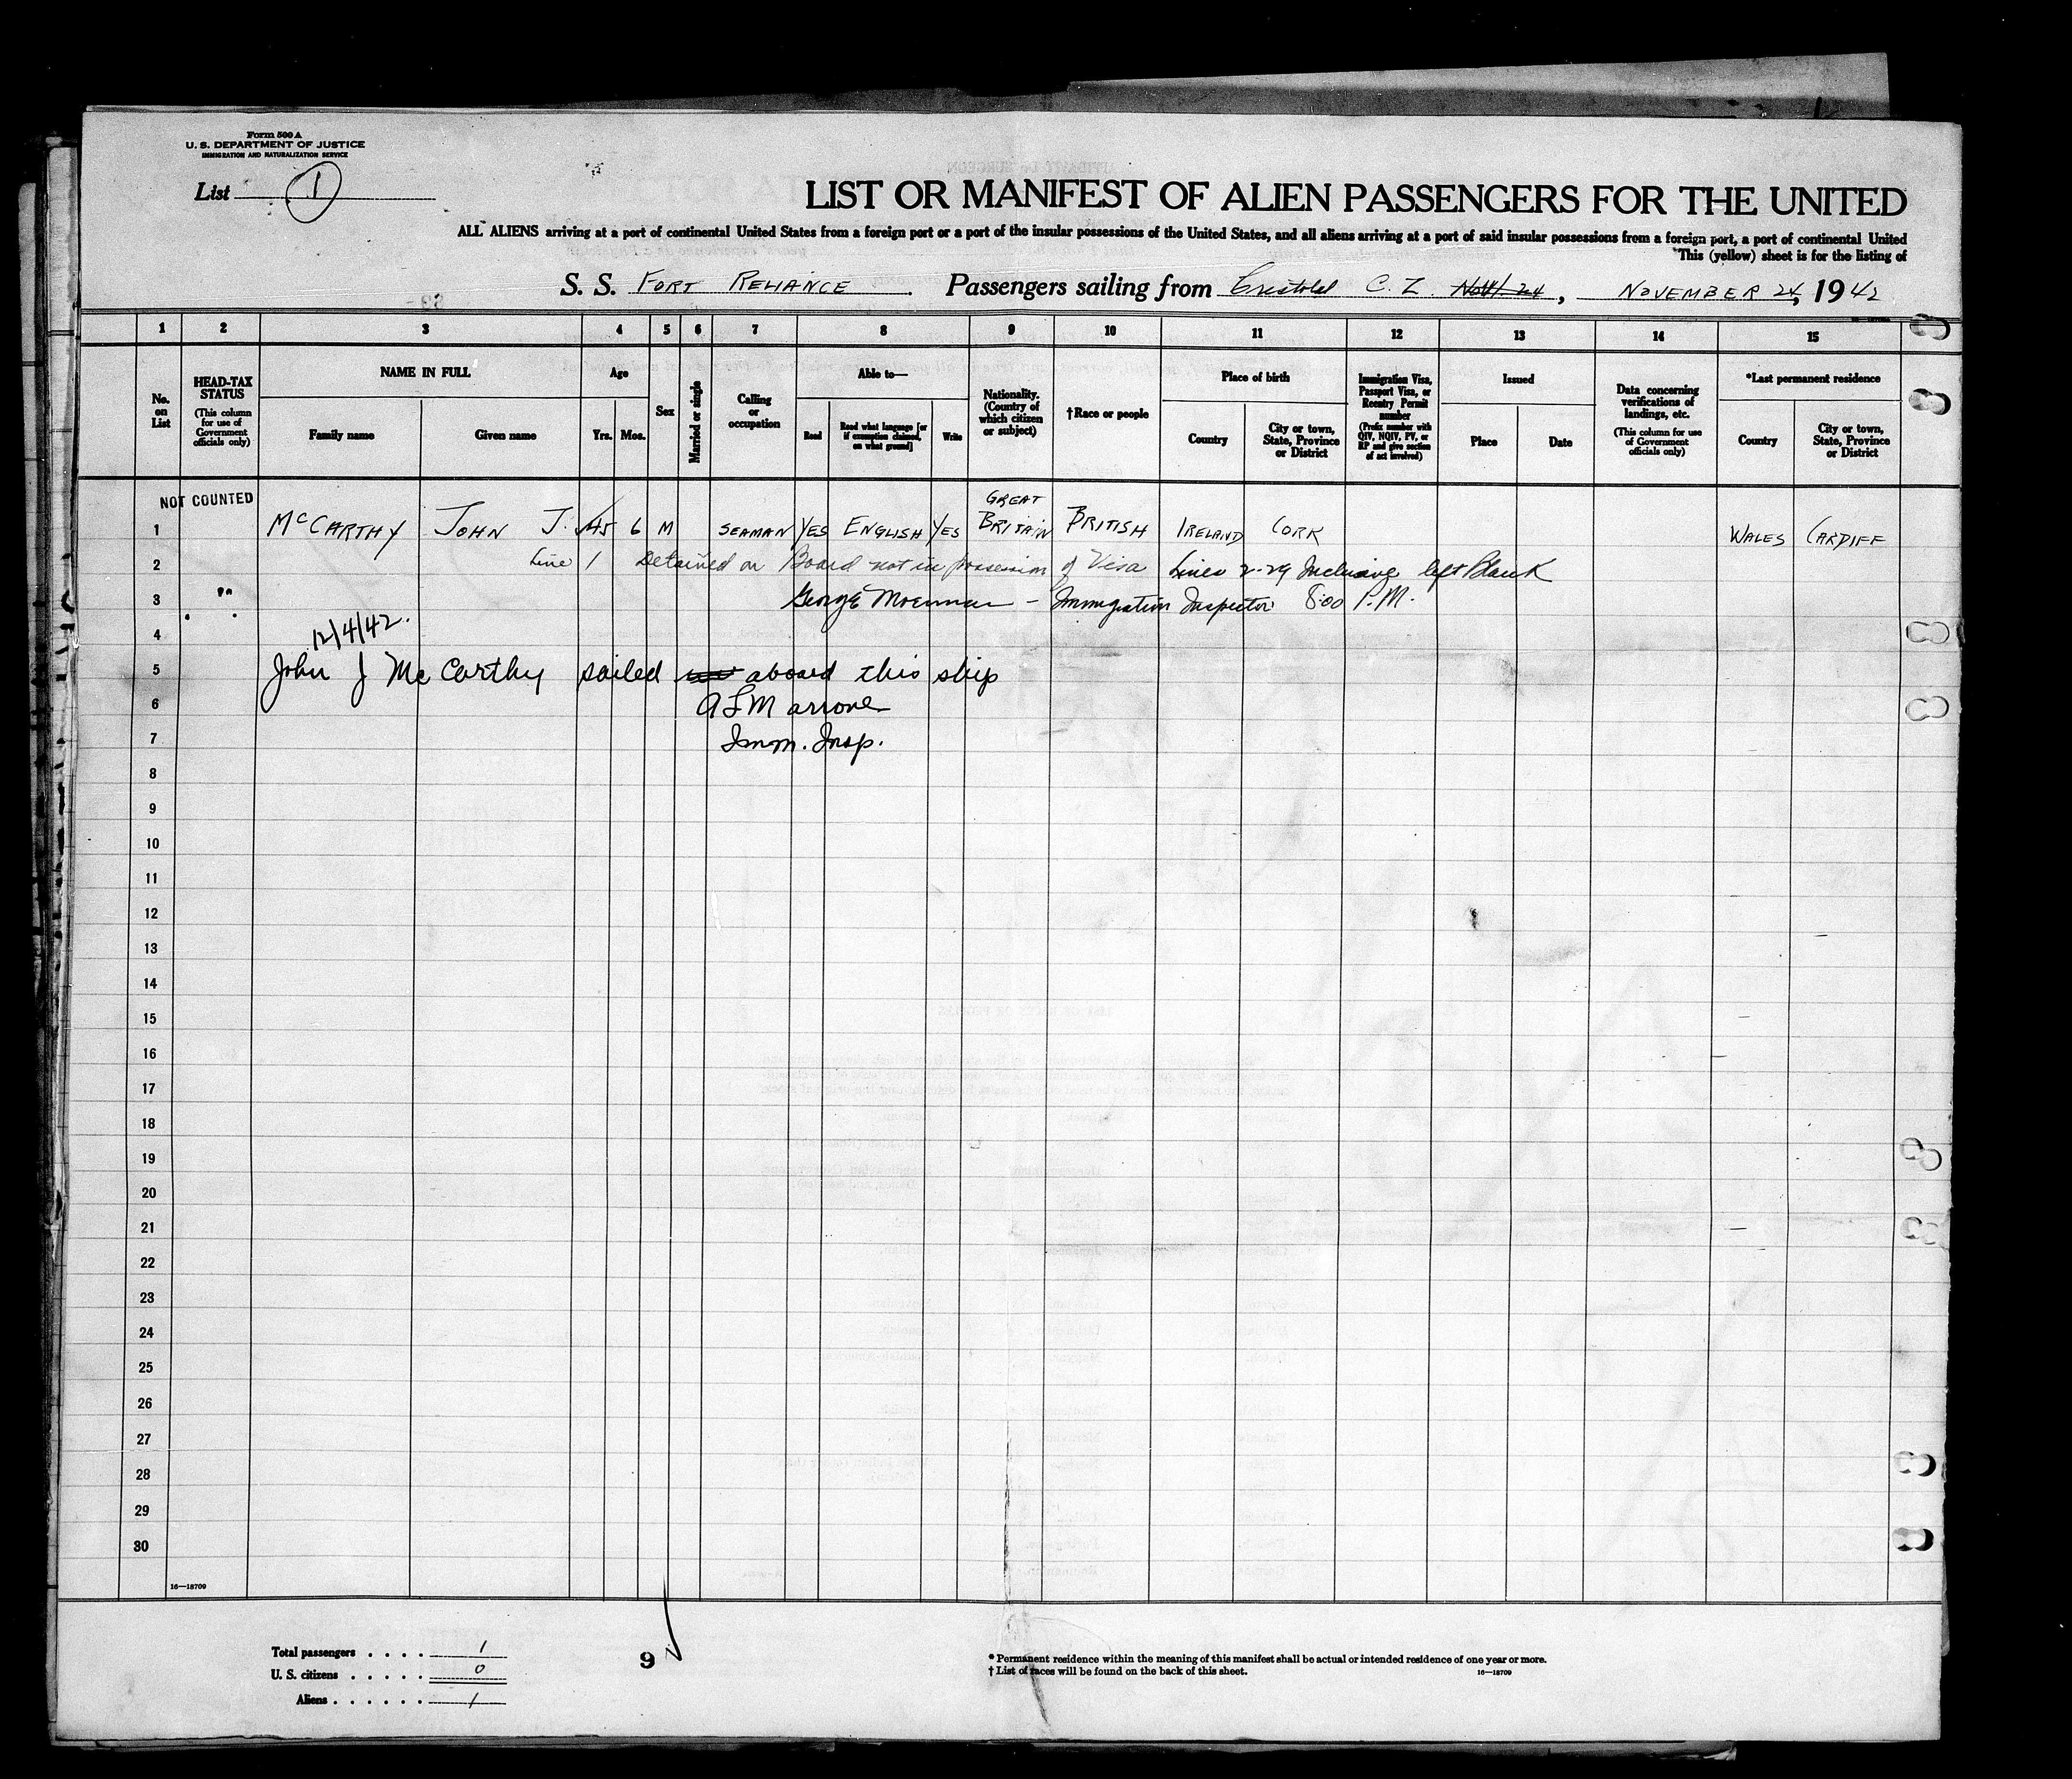 Form 500 A
U. S. DEPARTMENT OF JUSTICE
IMMIGRATION AND NATURALIZATION SERVICE
List 1
LIST OR MANIFEST OF ALIEN PASSENGERS FOR THE UNITED
ALL ALIENS arriving at a port of continental United States from a foreign port or a port of the insular possessions of the United States, and all aliens arriving at a port of said insular possessions from a foreign port, a port of continental United
This (yellow) sheet is for the listing of
S. S. FORT RELIANCE Passengers sailing from Cristobal C. Z. Nov. 24, NOVEMBER 24, 1942
1 2 3 4 5 6 7 8 9 10 11 12 13 14 15
No. on List
HEAD-TAX STATUS (This column for use of Government officials only)
NAME IN FULL
Family name
Given name
Age
Yrs. Mos.
Sex
Married or single
Calling or occupation
Able to—
Read
Read what language [or if exemption claimed, on what ground]
Write
Nationality. (Country of which citizen or subject)
†Race or people
Place of birth
Country
City or town, State, Province or District
Immigration Visa, Passport Visa, or Reentry Permit number (Prefix number with QIV, NQIV, PV, or RP and give section of act involved)
Issued
Place
Date
Data concerning verifications of landings, etc. (This column for use of Government officials only)
*Last permanent residence
Country
City or town, State, Province or District
NOT COUNTED
1 McCARTHY JOHN J. 45 6 M SEAMAN YES ENGLISH YES GREAT BRITAIN BRITISH IRELAND CORK WALES CARDIFF
2 Line 1 Detained on Board not in possession of Visa Lines 2-29 Inclusive left Blank
3 George - Immigration Inspector 8:00 P.M.
4 12/4/42.
5 John J McCarthy sailed aboard this ship
6 A L Marrone
7 Imm. Insp.
8
9
10
11
12
13
14
15
16
17
18
19
20
21
22
23
24
25
26
27
28
29
30
16—18709
Total passengers . . . . 1
U. S. citizens . . . . . 0
Aliens . . . . . . 1
9
* Permanent residence within the meaning of this manifest shall be actual or intended residence of one year or more.
† List of races will be found on the back of this sheet. 16—18709